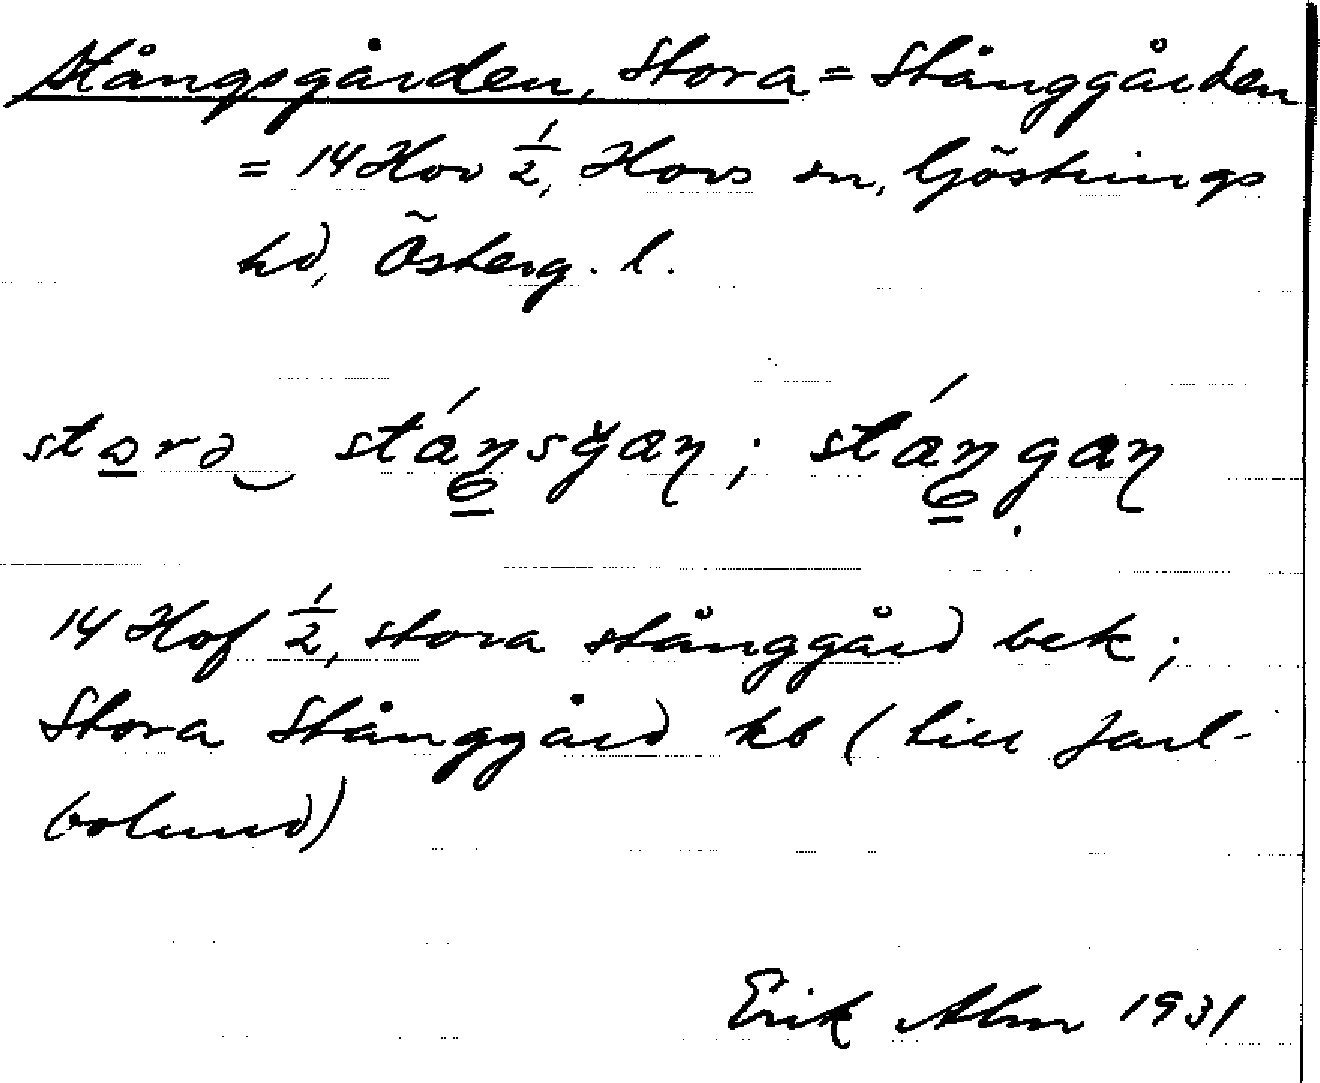 Stångsgården, Stora = Stånggården
= 14 Hov 1/2, Hovs sn, Göstrings
hd, Österg. l.
14 Hof 1/2, stora stånggård bek;
Stora Stånggård kb (till Jarl-
bolund)
Erik Alm 1931